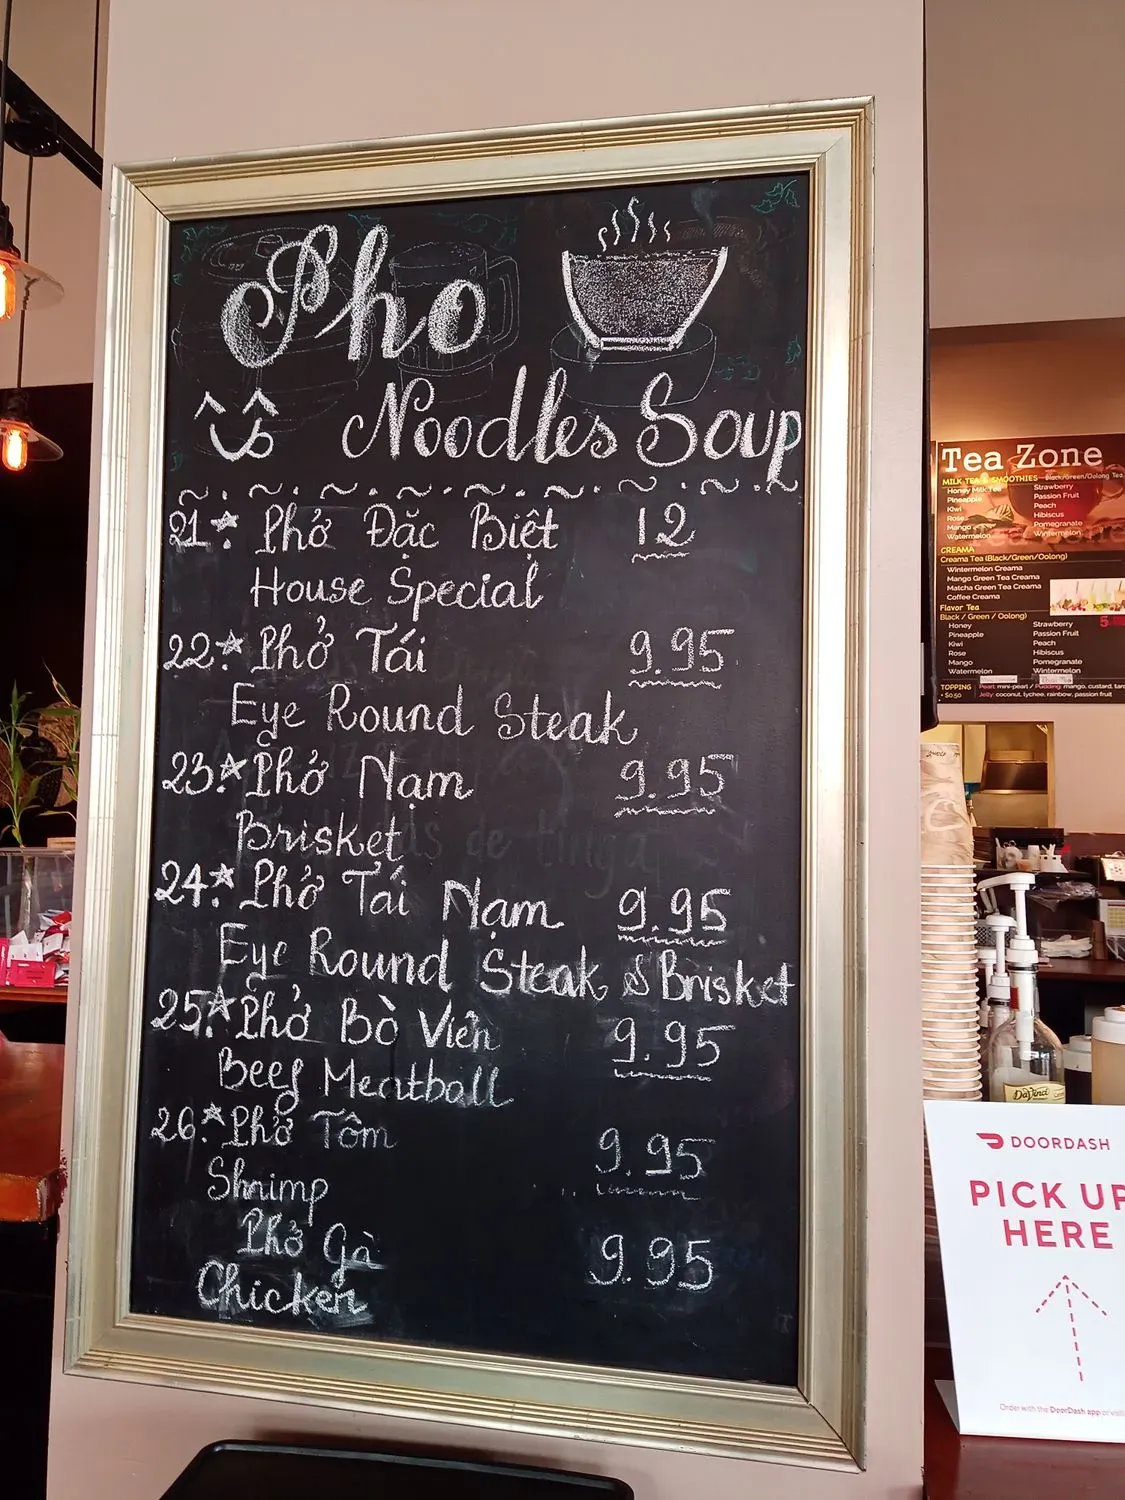 Pho
Noodles Soup
21. Phở Đặc Biệt 12
House Special
22. Phở Tái 9.95
Eye Round Steak
23. Phở Nạm 9.95
Brisket
24. Phở Tái Nạm 9.95
Eye Round Steak & Brisket
25. Phở Bò Viên 9.95
Beef Meatball
26. Phở Tôm 9.95
Shrimp
Phở Gà 9.95
Chicken
Tea Zone
MILK TEA & SMOOTHIES Black/Green/Oolong Tea
Honey Milk Tea Strawberry
Pineapple Passion Fruit
Kiwi Peach
Rose Hibiscus
Mango Pomegranate
Watermelon Wintermelon
CREAMA
Creama Tea (Black/Green/Oolong)
Wintermelon Creama
Mango Green Tea Creama
Matcha Green Tea Creama
Coffee Creama
Flavor Tea
Black / Green / Oolong)
Honey Strawberry
Pineapple Passion Fruit
Kiwi Peach
Rose Hibiscus
Mango Pomegranate
Watermelon Wintermelon
TOPPING Pearl: mini-pearl / Pudding: mango, custard, taro
+ $0.50 Jelly: coconut, lychee, rainbow, passion fruit
DaVinci
DOORDASH
PICK UP
HERE
Order with the DoorDash app or